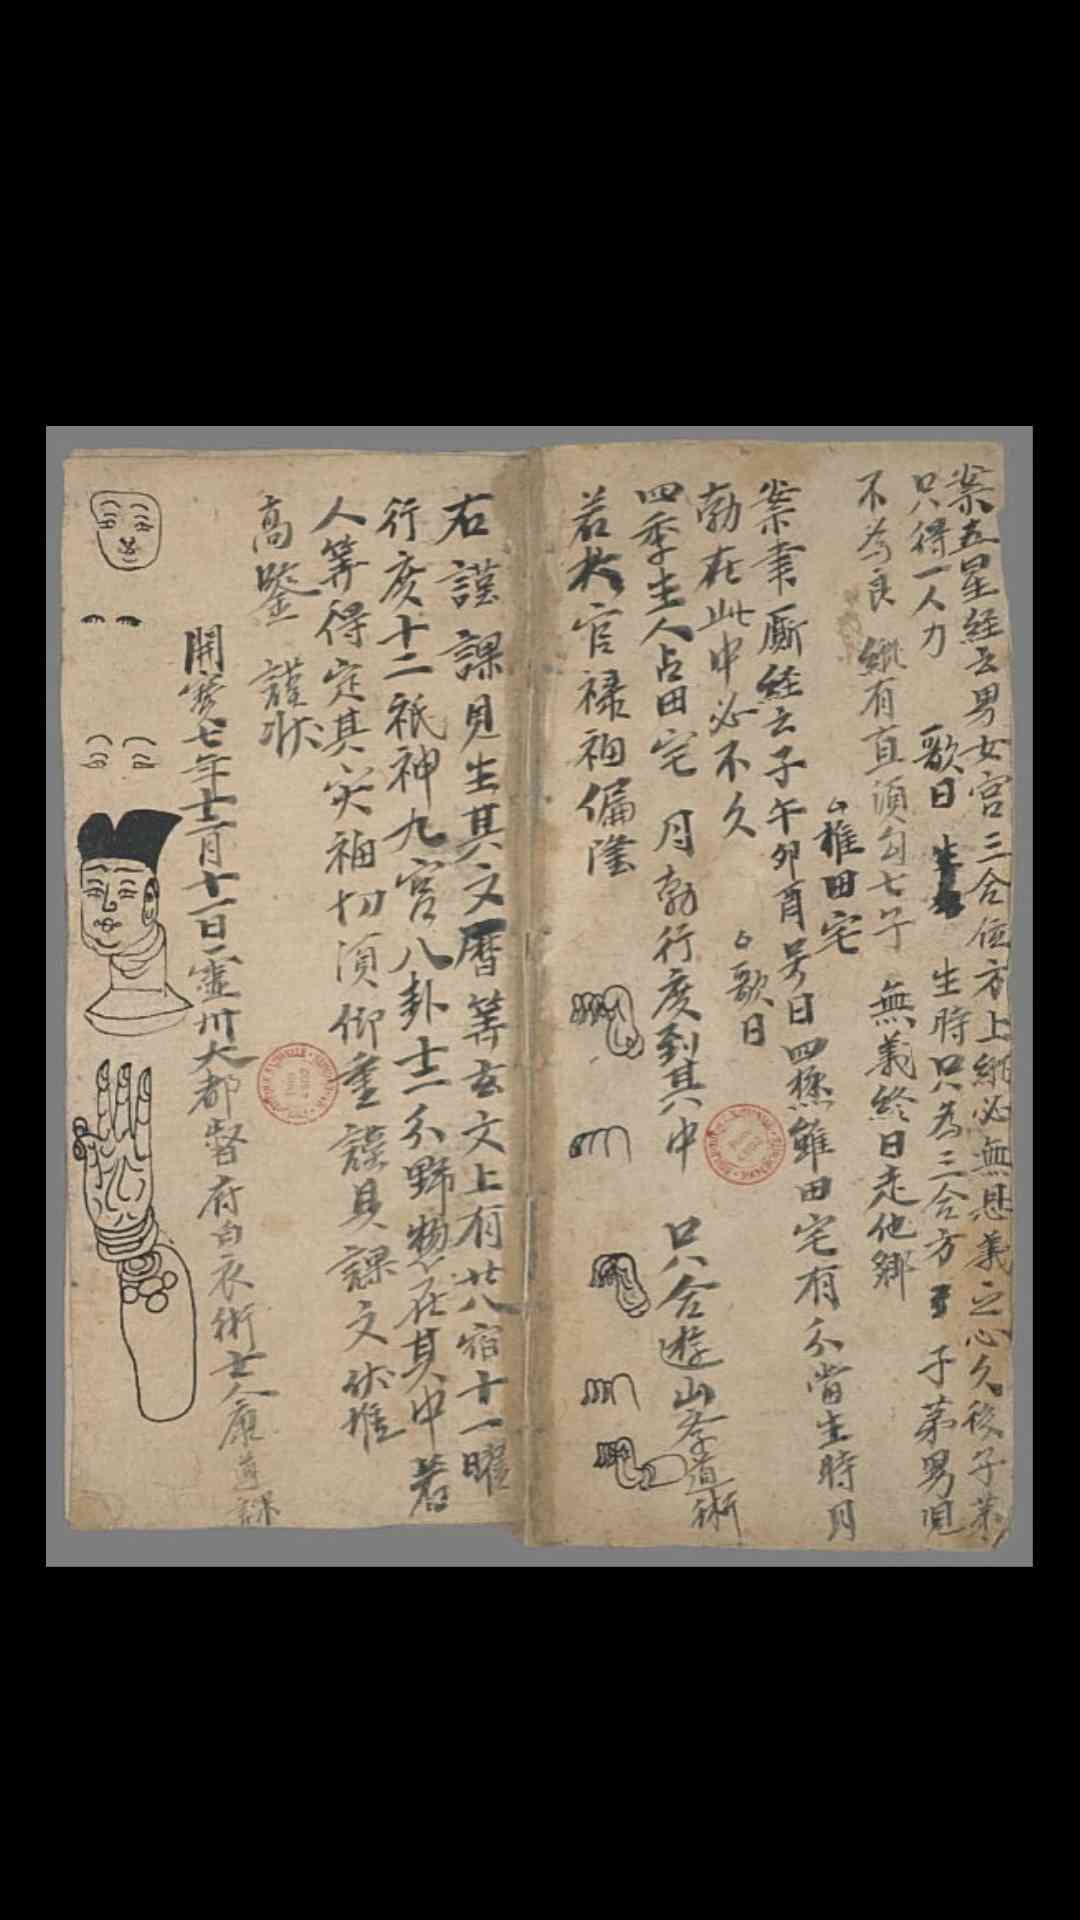 案五星經云男女宮三合位方上
必無恩義之心久後子弟
只得一人力
歌曰
生時只為三合方
子弟男
不為良
縱有直須勾七子
無義終日走他鄉
推田宅
案聿厮經云子午卯酉号曰四極雖田宅有分當生時月
勃在此中必不久
歌曰
四季生人占田宅
月勃行度到其中
只合遊山學道術
若於官禄禍偏隆
右謹課見生其文曆筭玄文上有廿八宿十一曜
行度十二祇神九宮八卦十二分野惣在其中若
人筭得定其灾福切須仰重謹具課文伏惟
高鑒
謹狀
開寶七年十二月十一日靈州大都督府白衣術士康遵課